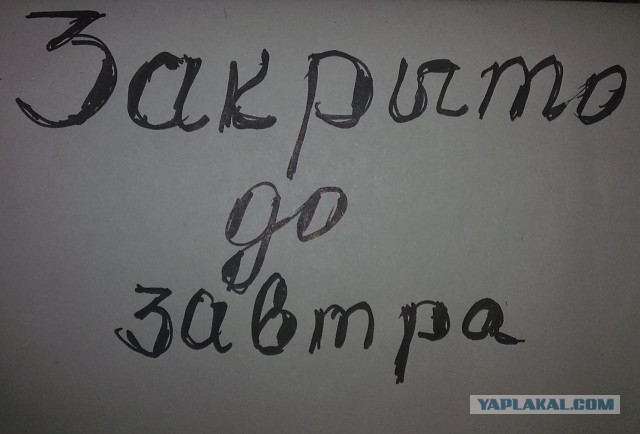 Закрыто
до
завтра
YAPLAKAL.COM